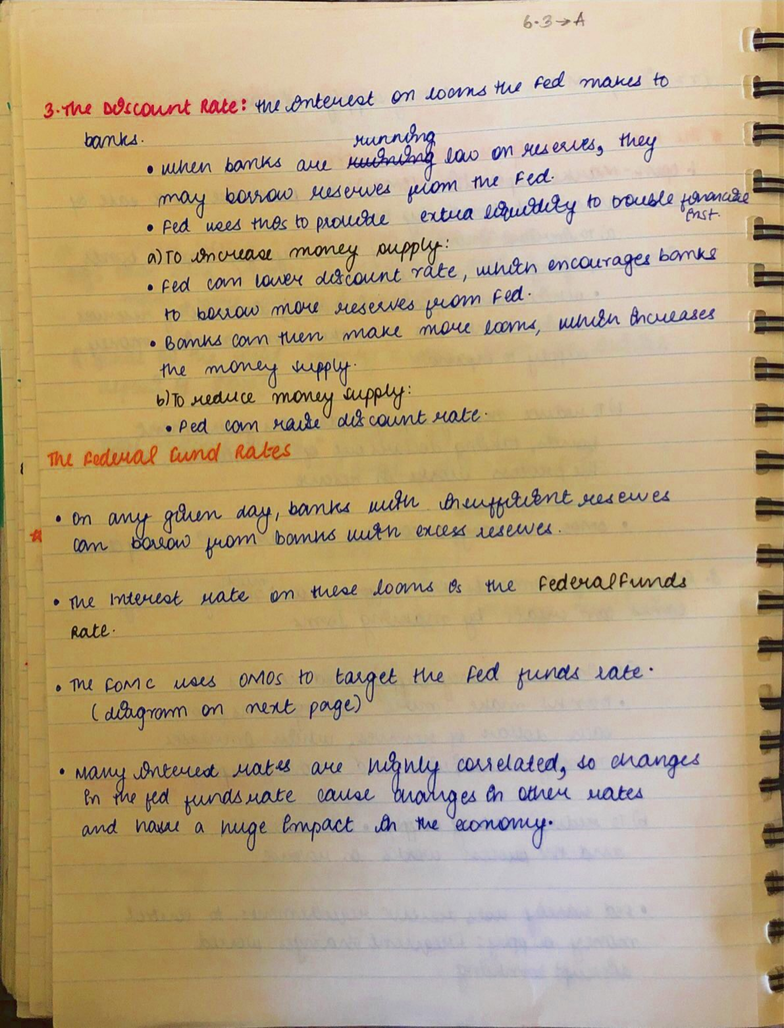 6.3→A
3. The Discount Rate: the interest on loans the Fed makes to
banks.
running
• when banks are running low on reserves, they
may borrow reserves from the Fed.
• Fed uses this to provide extra liquidity to trouble financial
inst.
a) To increase money supply:
• Fed can lower discount rate, which encourages banks
to borrow more reserves from Fed.
• Banks can then make more loans, which increases
the money supply.
b) To reduce money supply:
• Fed can raise discount rate.
The Federal Fund Rates
• On any given day, banks with insufficient reserves
can borrow from banks with excess reserves.
• The interest rate on these loans is the Federal Funds
Rate.
• The FOMC uses OMOs to target the Fed funds rate.
(diagram on next page)
• Many interest rates are highly correlated, so changes
in the fed funds rate cause changes in other rates
and have a huge impact in the economy.